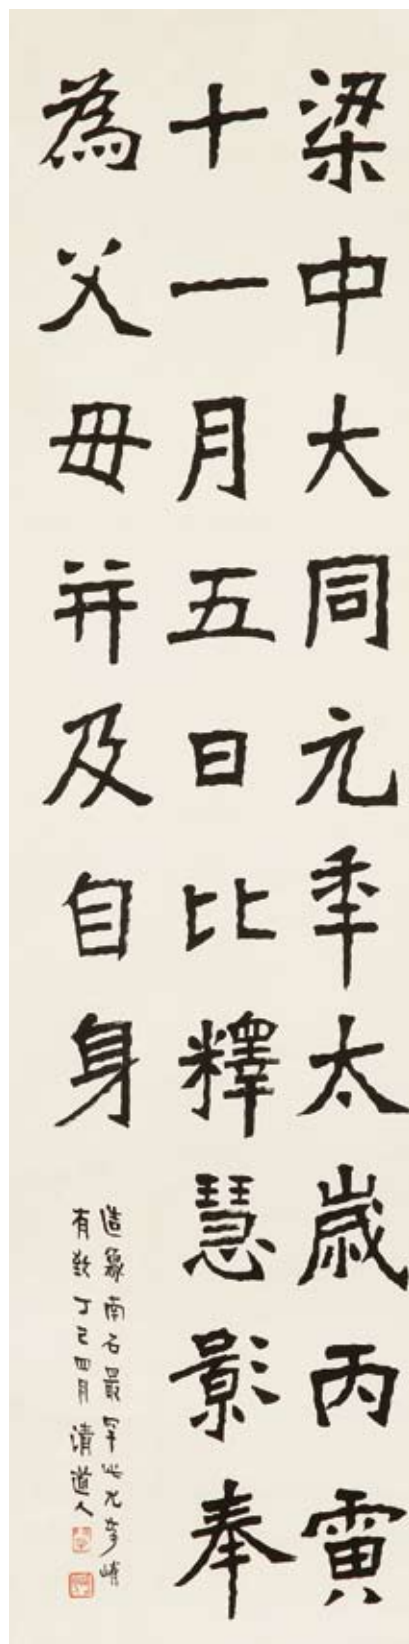 梁中大同元秊太歲丙寅
十一月五日比釋慧影奉
為父母并及自身
造象南石最罕此尤奇峭
有致丁巳四月清道人